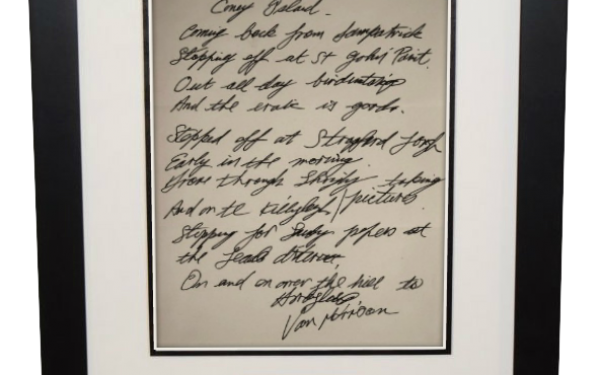 Coney Island.
Coming back from Downpatrick
Stopping off at St John's Point.
Out all day birdwatching
And the craic is good.
Stopped off at Strangford Lough
Early in the morning.
Drove through Shrigley taking
And on to Killyleagh / pictures
Stopping for Sunday papers at
the Lecale District
On and on over the hill to
Ardglass
Van Morrison